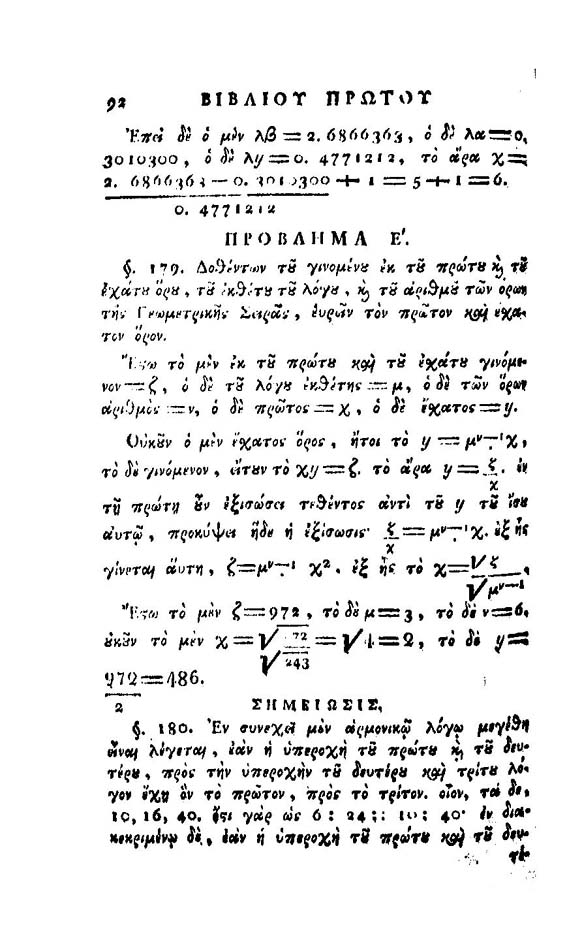 92 ΒΙΒΛΙΟΥ ΠΡΩΤΟΥ
Ἐπεὶ δὲ ὁ μὲν λβ = 2. 6866363, ὁ δὲ λα = 0,
3010300, ὁ δὲ λy = 0. 4771212, τὸ ἄρα χ =
2. 6866363 — 0. 3010300 + 1 = 5 + 1 = 6.
0. 4771212
ΠΡΟΒΛΗΜΑ Ε΄.
§. 179. Δοθέντων τȣ͂ γινομένȣ ἐκ τȣ͂ πρώτȣ ϗ τȣ͂
ἐχάτȣ ὅρȣ, τȣ͂ ἐκθέτȣ τȣ͂ λόγȣ, ϗ τȣ͂ ἀριθμȣ͂ τῶν ὅρων
τῆς Γεωμετρικῆς Σειρᾶς, ἑυρεῖν τὸν πρῶτον καὶ ἔχα-
τον ὅρον.
Ἔϛω τὸ μὲν ἐκ τȣ͂ πρώτȣ καὶ τȣ͂ ἐχάτȣ γινόμε-
νον = ζ, ὁ δὲ τȣ͂ λόγȣ ἐκθέτης = μ, ὁ δὲ τῶν ὅρων
ἀριθμὸς = ν, ὁ δὲ πρῶτος = χ, ὁ δὲ ἔχατος = y.
Οὐκȣ͂ν ὁ μὲν ἔχατος ὅρος, ἤτοι τὸ y = μν—1χ,
τὸ δὲ γινόμενον, εἴτȣν τὸ χy = ζ. τὸ ἄρα y = ζ. ἐν
χ
τῇ πρώτῃ ȣ͂ν ἐξισώσει τεθέντος ἀντὶ τȣ͂ y τȣ͂ ἴσȣ
ἀυτῷ, προκύψει ἥδε ἡ ἐξίσωσις· ζ = μν—1χ. ἐξ ἧς
χ
γίνεται ἅυτη, ζ = μν—1 χ². ἐξ ἧς τὸ χ = √ζ,
√μν—1
Ἔϛω τὸ μὲν ζ = 972, τὸ δὲ μ = 3, τὸ δὲ ν = 6.
ȣκȣ͂ν τὸ μὲν χ = √972 = √4 = 2, τὸ δὲ y =
√243
972 = 486.
2
ΣΗΜΕΙΩΣΙΣ,
§. 180. Ἐν συνεχεῖ μὲν ἁρμονικῷ λόγῳ μεγέθη
εἶναι λέγεται, ἐὰν ἡ ὑπεροχὴ τȣ͂ πρώτȣ ϗ τȣ͂ δευ-
τέρȣ, πρὸς τὴν ὑπεροχὴν τȣ͂ δευτέρȣ καὶ τρίτȣ λό-
γον ἔχῃ ὃν τὸ πρῶτον, πρὸς τὸ τρίτον. οἷον, τὰ δε,
10, 16, 40. ἔϛι γὰρ ὡς 6 : 24 :: 10 : 40· ἐν δια-
κεκριμένῳ δὲ, ἐὰν ἡ ὑπεροχὴ τȣ͂ πρώτȣ καὶ τȣ͂ δευ-
τέ-